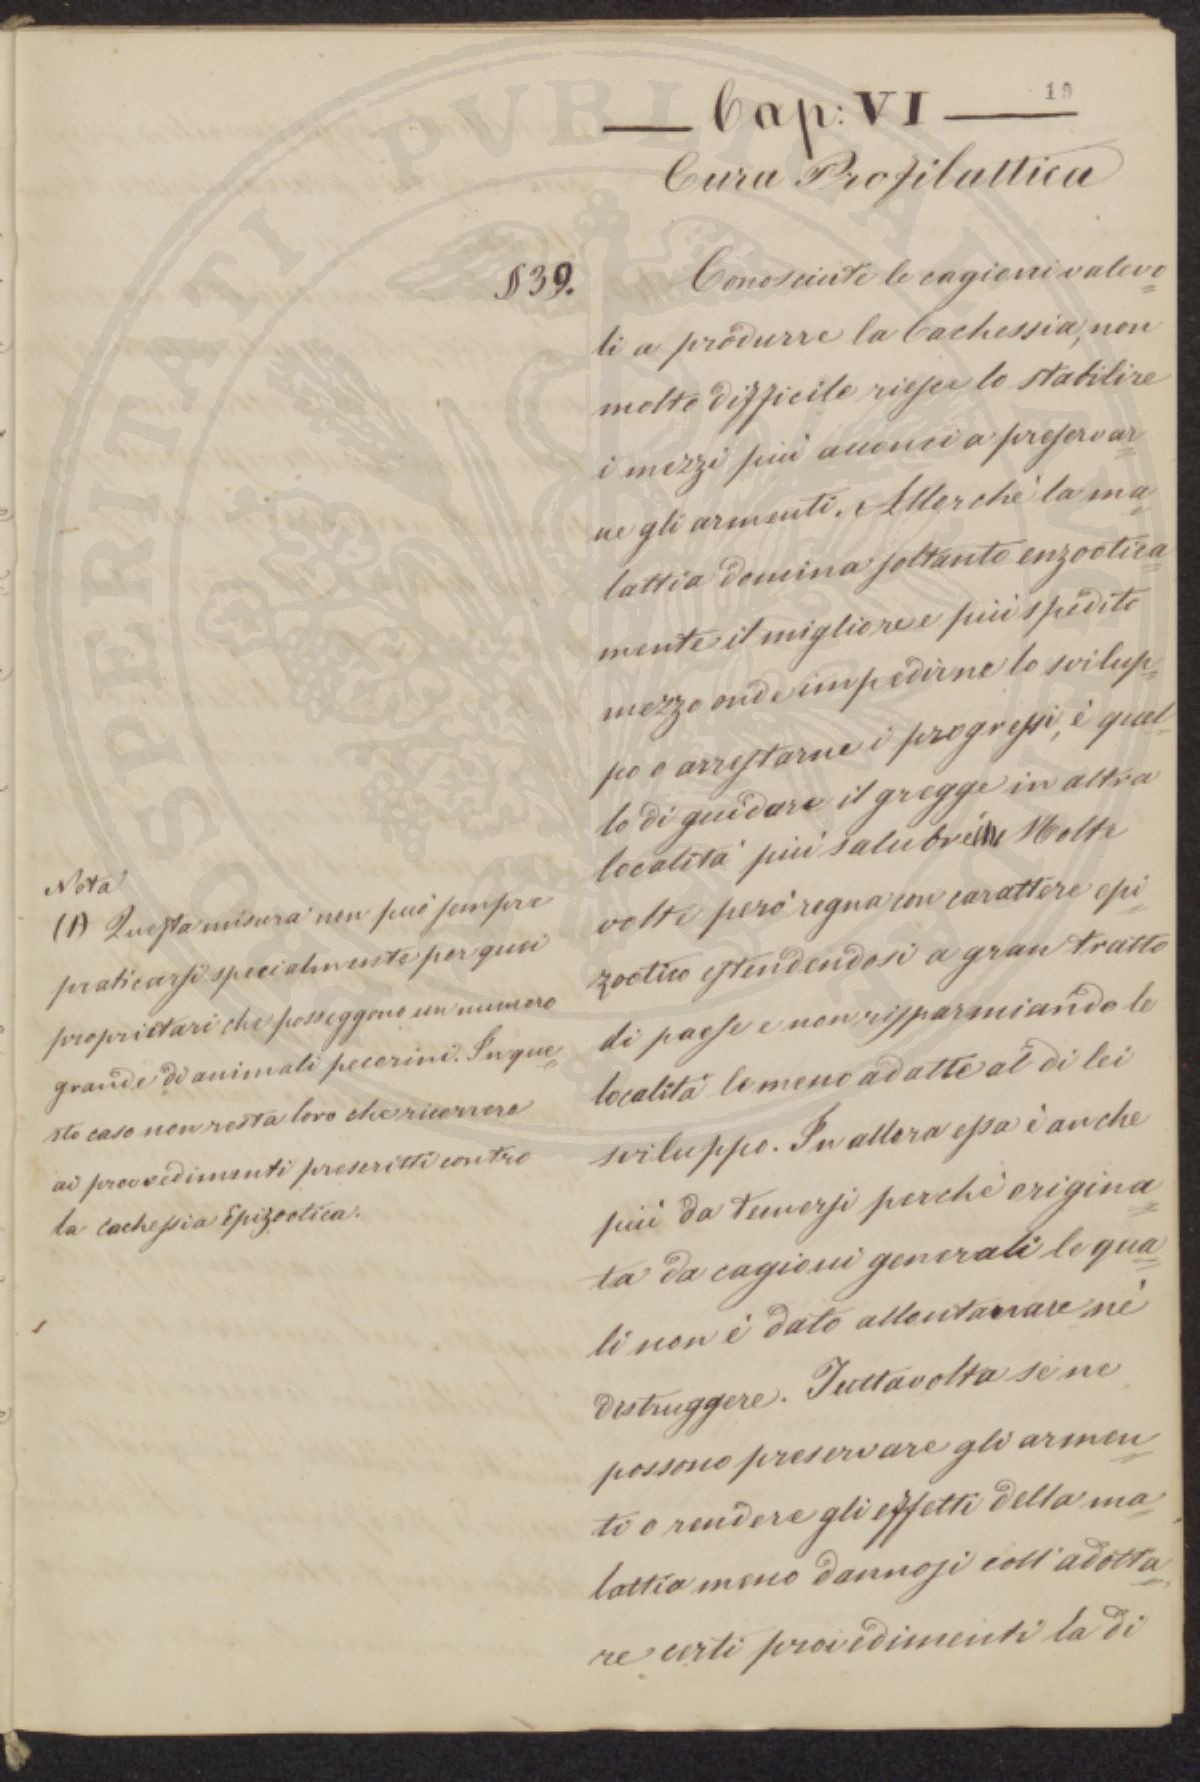 19
Cap: VI
Cura Profilattica
§ 39.
Conosciute le cagioni valevo=
li a produrre la Cachessia, non
molto difficile riesce lo stabilire
i mezzi più acconci a preservar=
ne gli armenti. Allorchè la ma=
lattia domina soltanto enzootica=
mente il migliore e più spedito
mezzo onde impedirne lo svilup=
po o arrestarne i progressi, è quel=
lo di guidare il gregge in altra
località più salubre (1). Molte
volte però regna con carattere epi=
zootico estendendosi a gran tratto
di paese e non risparmiando le
località le meno adatte al di lei
sviluppo. In allora essa è anche
più da temersi perchè origina=
ta da cagioni generali le qua=
li non è dato allontanare nè
distruggere. Tuttavolta se ne
possono preservare gli armen=
ti o rendere gli effetti della ma=
lattia meno dannosi coll'adotta=
re certi provedimenti la di
Nota
(1) Questa misura non può sempre
praticarsi specialmente per quei
proprietari che posseggono un numero
grande di animali pecorini. In que=
sto caso non resta loro che ricorrere
ai provvedimenti prescritti contro
la cachessia Epizootica.
SPERITATI PVBLICAE